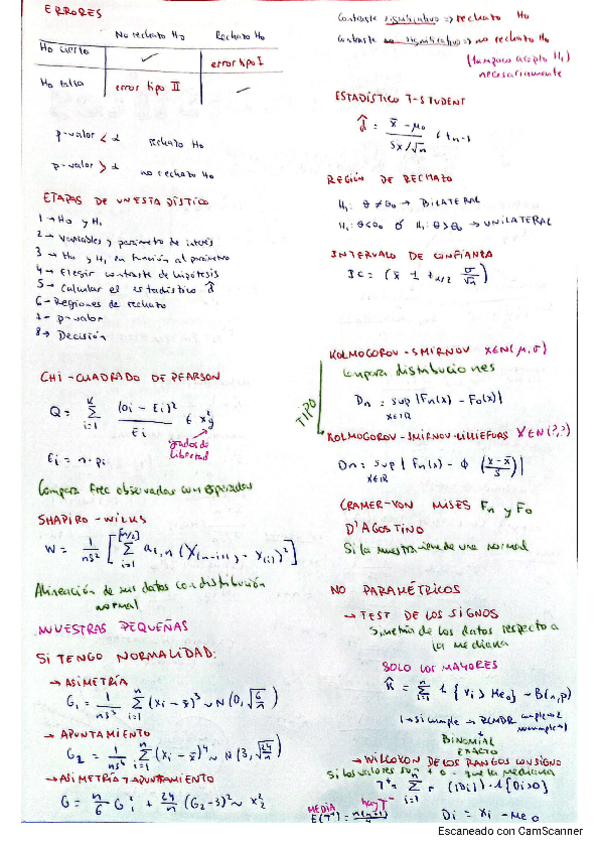 ERRORES
No rechazo H₀ Rechazo H₀
H₀ cierto ✓ error tipo I
H₀ falsa error tipo II ✓
p-valor < α rechazo H₀
p-valor > α no rechazo H₀
ETAPAS DE UN ESTADÍSTICO
1 → H₀ y H₁
2 → Variables y parámetro de interés
3 → H₀ y H₁ en función al parámetro
4 → Elegir contraste de hipótesis
5 → Calcular el estadístico
6 - Regiones de rechazo
7 - p-valor
8 → Decisión
CHI-CUADRADO DE PEARSON
Q = Σ (Oi - Ei)² / Ei ∈ χ²g
i=1 K
grados de libertad
Ei = n·pi
Compara frec observadas con esperadas
SHAPIRO-WILKS
W = 1/ns² [ Σ ai,n (X(n-i+1) - X(i))² ]
Alineación de sus datos con distribución
normal
MUESTRAS PEQUEÑAS
SI TENGO NORMALIDAD:
→ ASIMETRÍA
G₁ = 1/ns³ Σ (xi - x̄)³ ~ N(0, √6/n)
→ APUNTAMIENTO
G₂ = 1/ns⁴ Σ (xi - x̄)⁴ ~ N(3, √24/n)
→ ASIMETRÍA Y APUNTAMIENTO
G = n/6 G₁² + 24/n (G₂-3)² ~ χ²₂
Contraste significativo => rechazo H₀
Contraste no significativo => no rechazo H₀
(tampoco acepto H₁)
necesariamente
ESTADÍSTICO T-STUDENT
= x̄ - μ₀ / Sx/√n ∈ tn-1
REGIÓN DE RECHAZO
H₁: θ ≠ θ₀ → BILATERAL
H₁: θ < θ₀ ó H₁: θ > θ₀ → UNILATERAL
INTERVALO DE CONFIANZA
IC = (x̄ ± tα/2 σ/√n)
KOLMOGOROV-SMIRNOV X∈N(μ,σ)
Compara distribuciones
Dn = sup |Fn(x) - F₀(x)|
x∈IR
TIPO
KOLMOGOROV-SMIRNOV-LILLIEFORS X∈N(?,?)
Dn = sup | Fn(x) - Φ (x-x̄/S)|
x∈IR
CRAMER-VON MISES Fn y F₀
D'AGOSTINO
Si la muestra viene de una normal
NO PARAMÉTRICOS
→ TEST DE LOS SIGNOS
Simetría de los datos respecto a
la mediana
SOLO LOS MAYORES
= Σ 1{Yi > Me₀} ~ B(n,p)
1 → si cumple → RCMDR
BINOMIAL
EXACTO
→ WILCOXON DE LOS RANGOS CON SIGNO
Si los valores son + o - que la mediana
T⁺ = Σ r (|Di|)·1{Di>0}
MEDIA hay T⁻
E(T⁺) = n(n+1)/4
Di = Xi - Me₀
Escaneado con CamScanner